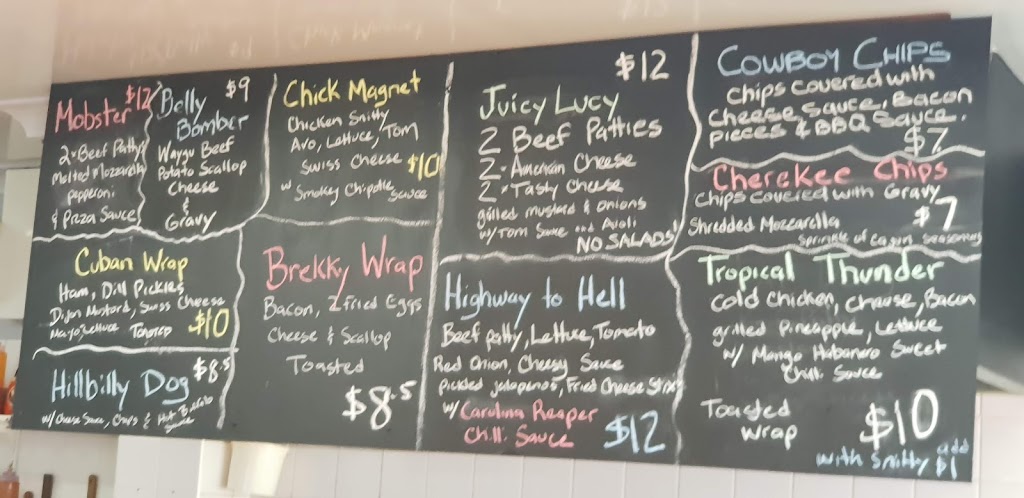 Mobster $12
2 x Beef Patty's
Melted Mozzarella
Pepperoni
& Pizza Sauce
Belly $9
Bomber
Waygu Beef
Potato Scallop
Cheese
&
Gravy
Chick Magnet
Chicken Snitty
Avo, Lettuce, Tom
Swiss Cheese $10
w Smokey Chipotle Sauce
$12
Juicy Lucy
2 Beef Patties
2 - American Cheese
2 x Tasty Cheese
grilled mustard & onions
w/ Tom Sauce and Aioli
NO SALADS!
Cowboy Chips
Chips covered with
cheese sauce, Bacon
pieces & BBQ Sauce.
$7
Cherokee Chips
Chips covered with Gravy
Shredded Mozzarella $7
Sprinkle of Cajun Seasoning
Cuban Wrap
Ham, Dill Pickles
Dijon Mustard, Swiss Cheese
Mayo, Lettuce Toasted $10
Hillbilly Dog $8.5
w/ Cheese Sauce, & Hot Buffalo
Sauce
Brekky Wrap
Bacon, 2 fried Eggs
Cheese & Scallop
Toasted
$8.5
Highway to Hell
Beef patty, Lettuce, Tomato
Red Onion, Cheesy Sauce
pickled jalapenos, Fried Cheese Stix
w/ Carolina Reaper
Chilli Sauce $12
Tropical Thunder
Cold Chicken, Cheese, Bacon
grilled Pineapple, Lettuce
w/ Mango Habanero Sweet
Chilli Sauce
Toasted
Wrap $10
with Snitty add $1